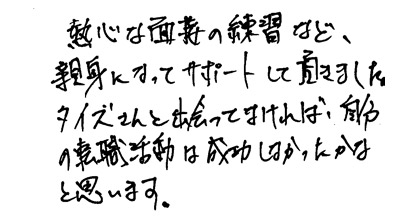 熱心な面接の練習など、
親身になってサポートして頂きました。
タイズさんと出会ってなければ、自分
の転職活動は成功しなかったかな
と思います。